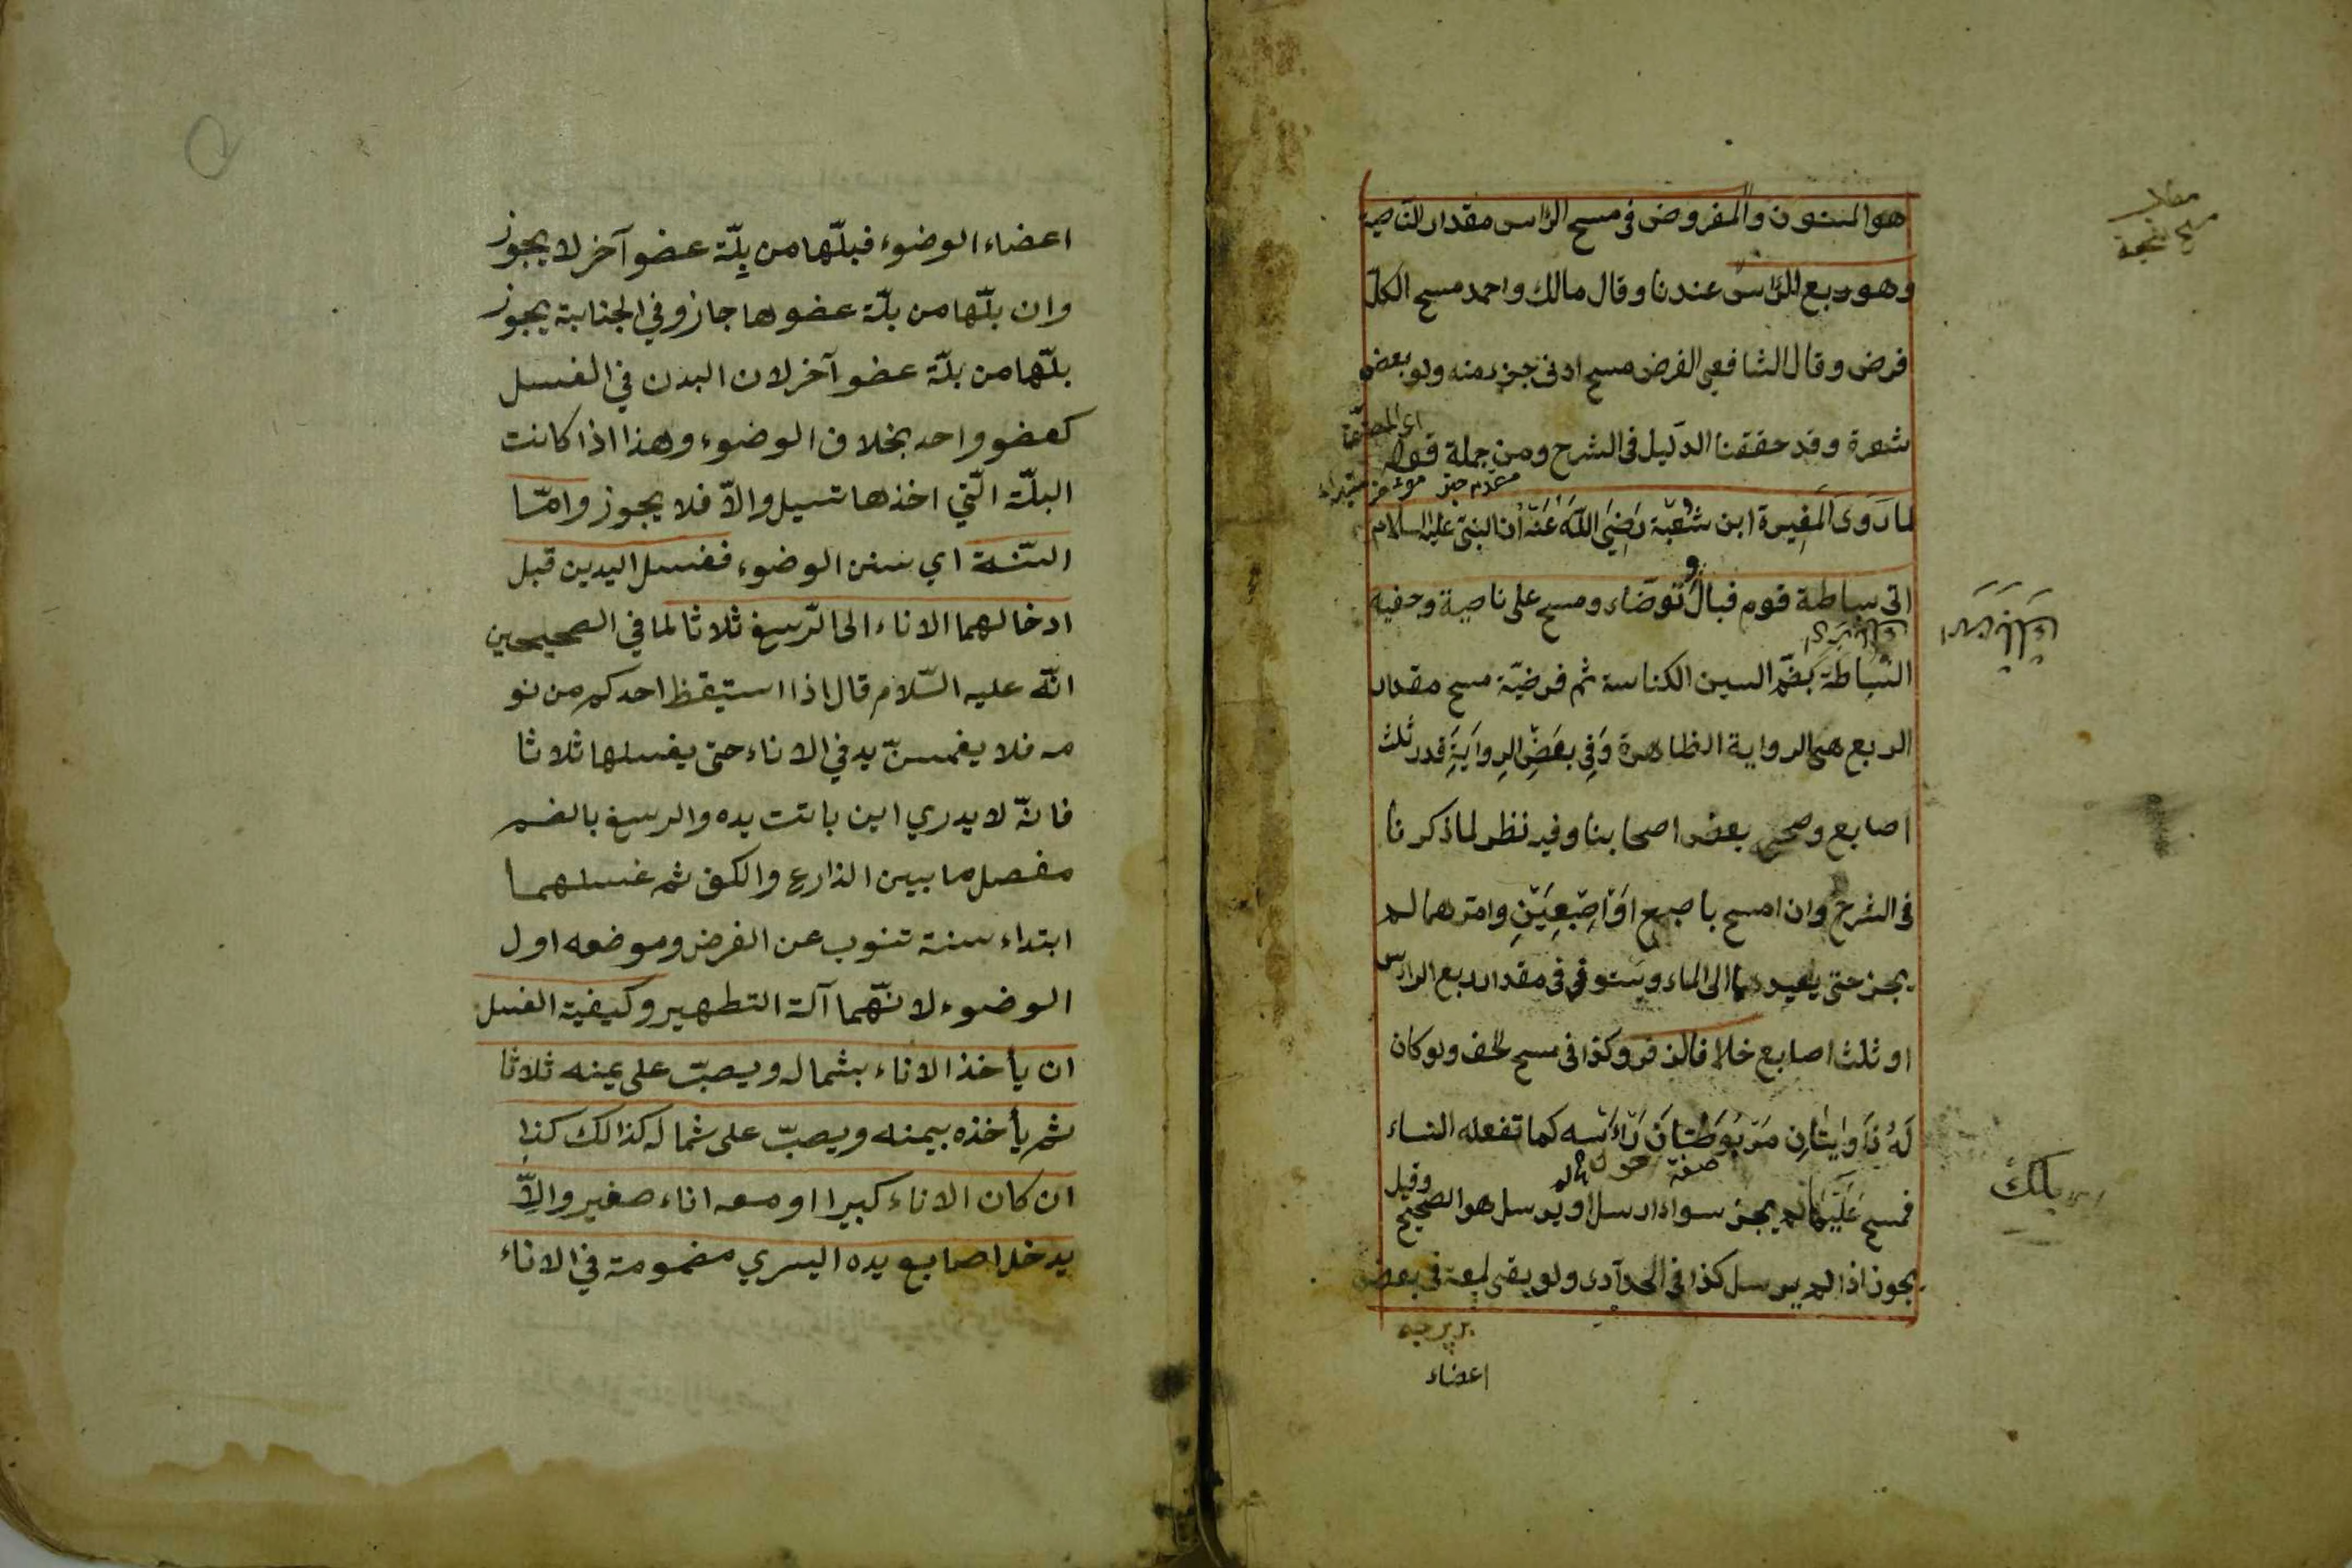 هو المسنون والمفروض فى مسح الرّاس مقدار النّاصية
وهو ربع الرّاس عندنا وقال مالك واحمد مسح الكلّ
فرض وقال الشافعى الفرض مسح ادنى جزء منه ولو بعض
شعرة وقد حققنا الدّليل فى الشرح ومن جملة قوله
مقدم خبر مؤخر مبتداء
لما رَوَىَ المُغِيرة ابن شُعْبَة رَضِيَ اللّهُ عَنْهُ أن النبىّ عليه السلام
اتى سباطة قوم فبال وتوضّاء ومسح على ناصية وخفيه
السّباطة بضَمّ السين الكناسة ثم فرضيّة مسح مقدار
الربع هى الرواية الظاهرة وَفِى بعَضِ الرِوايَةِ قدر ثلث
اصابع وصححه بعض اصحابنا وفيه نظر لما ذكرنا
فى الشرح وان امسح باصبع اوَ اصِبْعِيَنِ وامترهما لم
يجز حتى يعيدهما الى الماء ويستوفى فى مقدار ربع الراس
او ثلث اصابع خلافا لزفر وكذا فى مسح الخف ولو كان
لَهُ ذَاوايَتانِ مَرْبُوطَتانَ رَاءَسه كما تفعله النساء
صفة حول
وقيل
فمسح عَلَيْهَا لم يجز سواء ارسل او يرسل هو الصحيح
يجوز اذا لم يرسل كذا فى الحدّادى ولو بقى لمعة فى بعض
اعضاء
مقدار
مسح
اعضاء الوضوء فبلّها من بِلّة عضو آخر لا يجوز
وان بلّها من بلّة عضوها جاز وفي الجنابة يجوز
بلّها من بلّة عضو آخر لان البدن في الغسل
كعضو واحد بخلاف الوضوء وهذا اذا كانت
البلّة الّتي اخذها تسيل والاّ فلا يجوز وامّا
السّنة اي سنن الوضوء فغسل اليدين قبل
ادخالهما الاناء الى الرّسغ ثلاثا لما في الصحيحين
انّه عليه السّلام قال اذا استيقظ احدكم من نو
مه فلا يغمسنّ يد في الاناء حتى يغسلها ثلاثا
فانّه لا يدري اين باتت يده والرسغ بالضم
مفصل ما بين الذارع والكف ثم غسلهما
ابتداء سنة تنوب عن الفرض وموضعه اول
الوضوء لانّهما آلة التطهير وكيفية الغسل
ان يأخذ الاناء بشماله ويصبّ على يمنه ثلاثا
ثم يأخذه بيمنه ويصبّ على شماله كذالك كذا
ان كان الاناء كبيرا او معه اناء صغير والاّ
يدخل اصابع يده اليسري مضمومة في الاناء